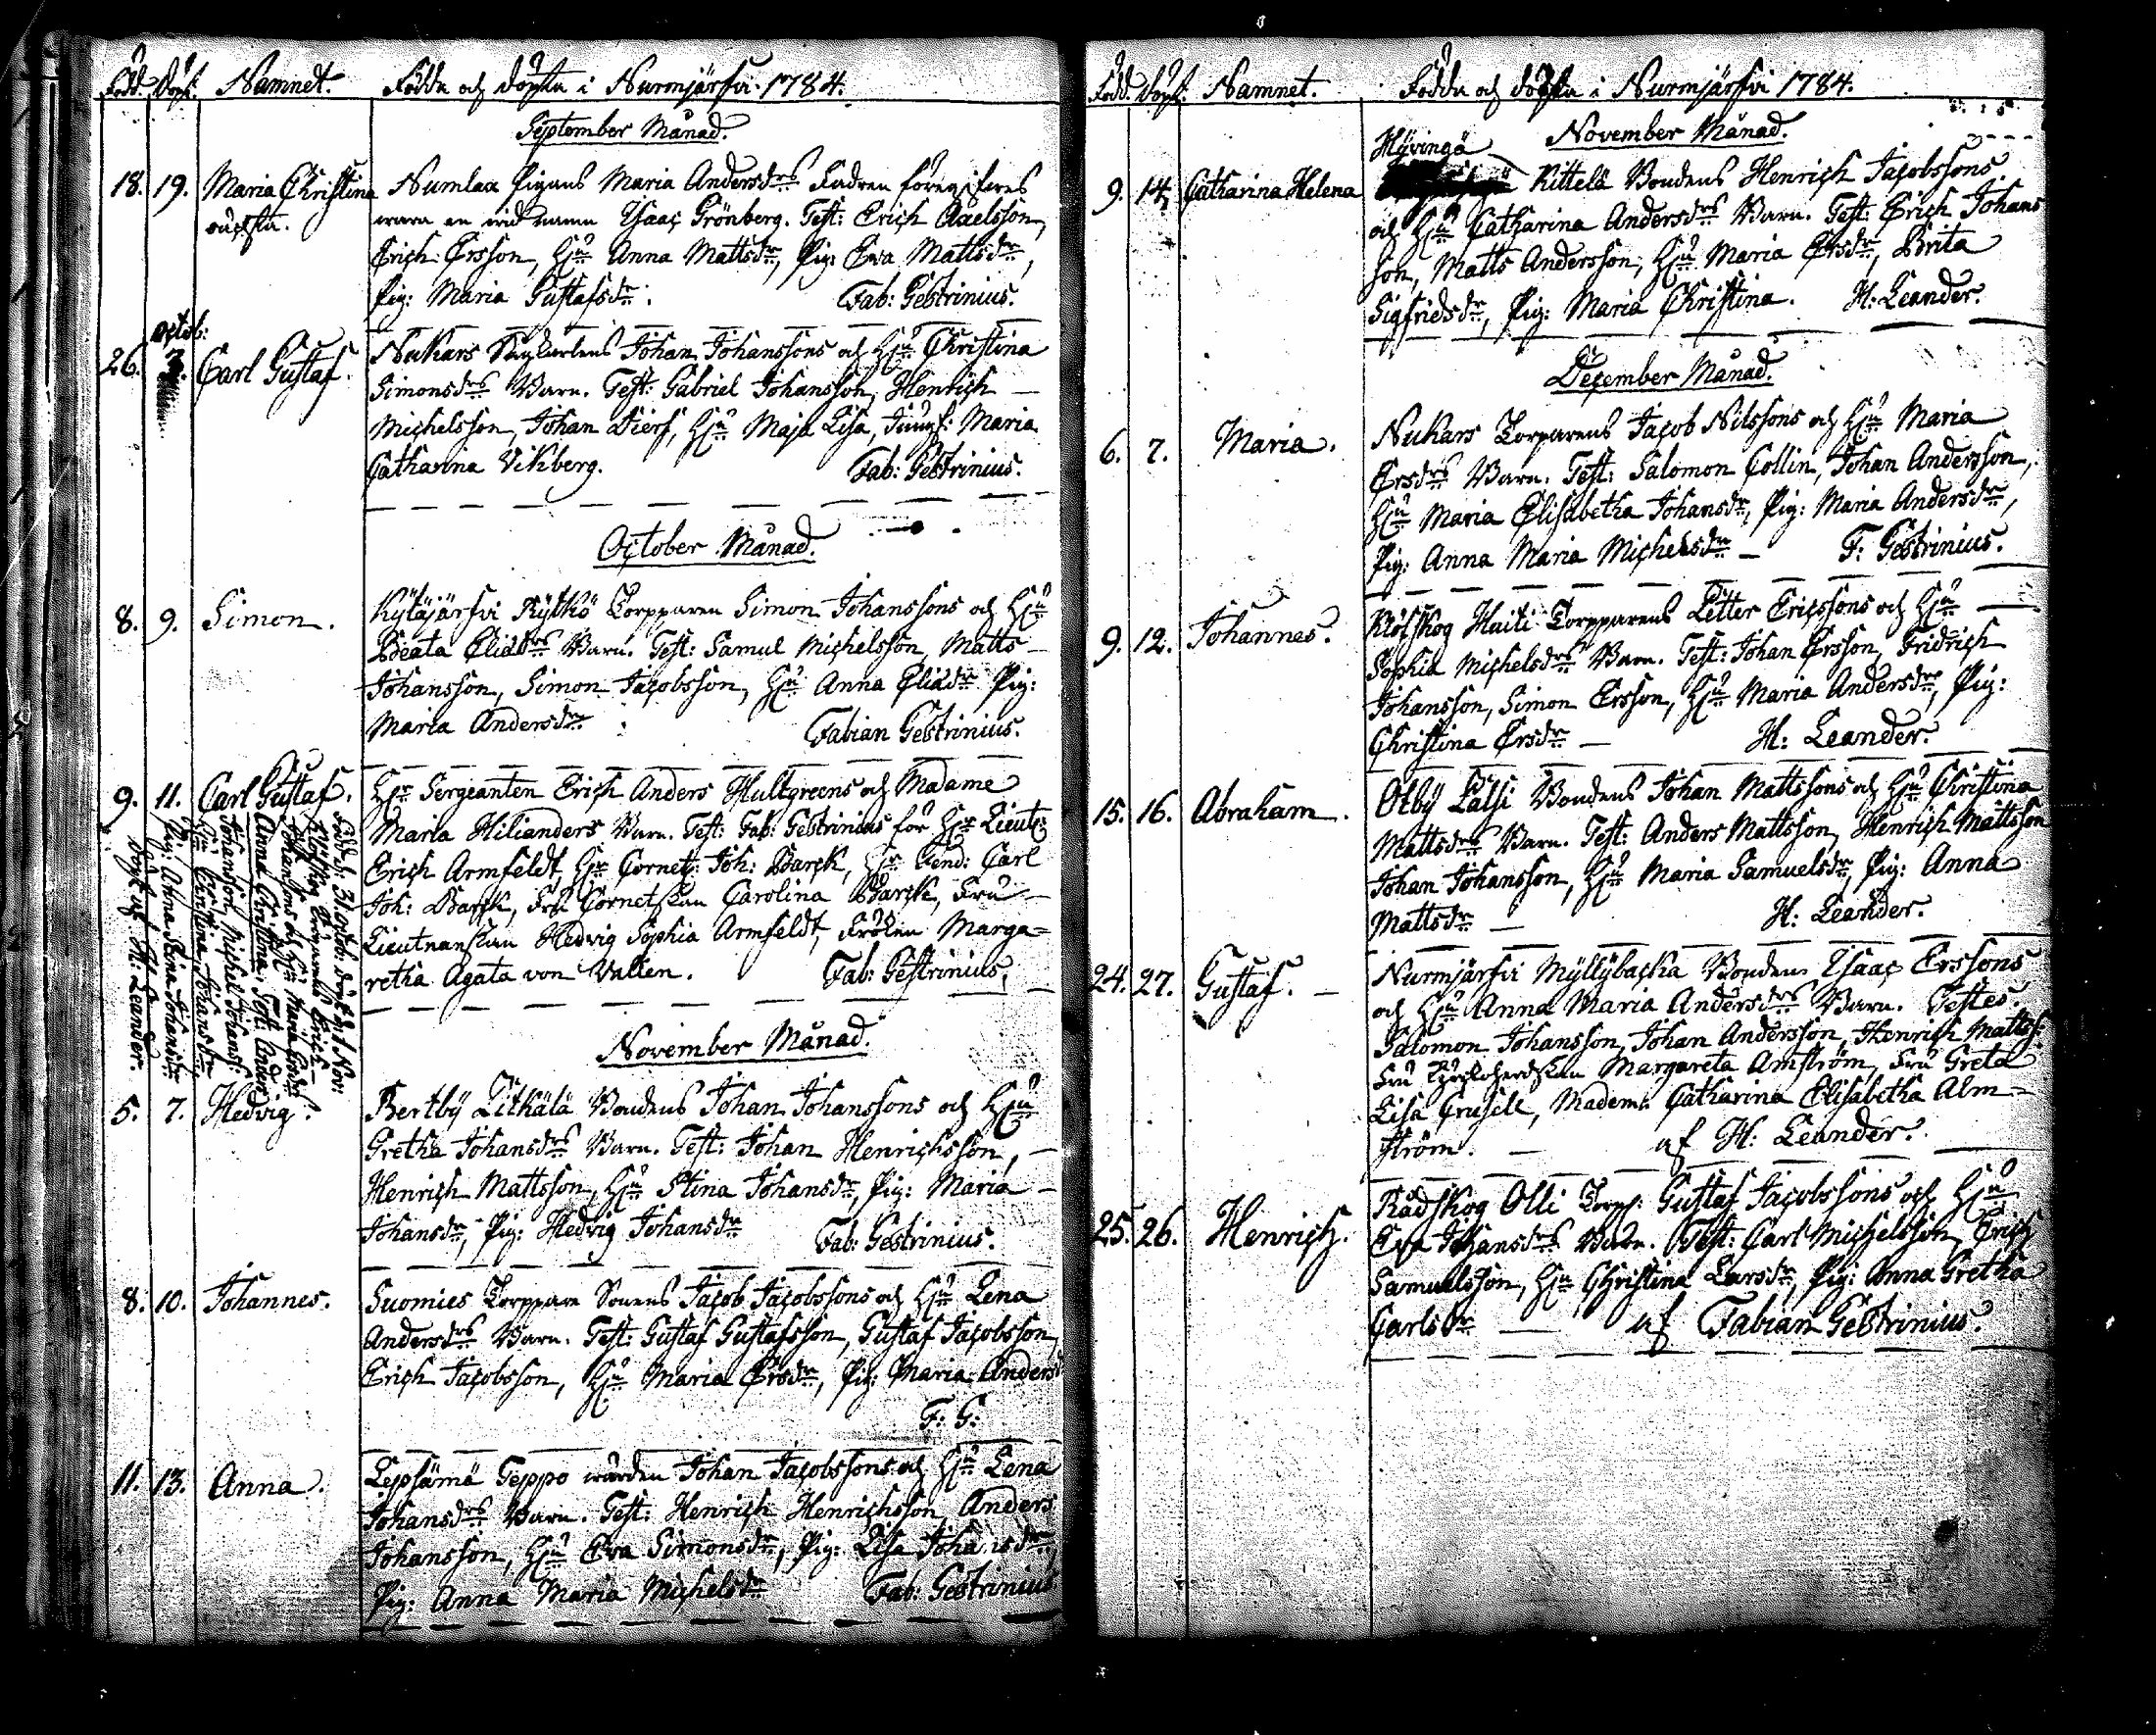 Född. Döpt. Namnet. Födde och döpte i Nurmjärfvi 1784.
September Månad.
18. 19. Maria Christina Numlax Pigans Maria Andersdrs Fadrenföregifves
oächta. wara en wid namn Isaac Grönberg. Test: Erich Axelsson,
Erich Ersson, Hu Anna Mattsdr, Pig: Eva Mattsdr,
Pig: Maria Gustafsdr. Fab: Gestrinius.
Octob:
26. 3. Carl Gustaf. Nukars Johan Johanssons och Hu Christina
Simonsdrs Barn. Test: Gabriel Johansson, Henrich
Michelsson, Johan Dierf, Hu Maja Lisa, Jungf: Maria
Catharina Vikberg. Fab: Gestrinius.
October Månad.
8. 9. Simon. Kytäjärfvi Rytkö Torpparen Simon Johanssons och Hu
Beata Eliædrs Barn. Test: Samul Michelsson, Matts
Johansson, Simon Jacobsson, Hu Anna Eliædr Pig:
Maria Andersdr Fabian Gestrinius.
9. 11. Carl Gustaf. Hr Sergeanten Erich Anders Hultgreens och Madame
Maria Hilianders Barn. Test: Fab: Gestrinius för Hr Lieut:
Erich Armfeldt, Hr Cornet: Joh: Barck, Hr Carl
Joh: Barck, Fru Cornetskan Carolina Barck, Fru
Lieutnanskan Hedvig Sophia Armfeldt, Fröken Marga=
retha Agata von Vallen. Fab: Gestrinius.
Född. 31 Octob: döpt d. 1 Nov:
Röfskog Erich
Johanssons och Hu Maria Ersdrs
Anna Christina. Test: Anders
Johansson, Michel Johans:
Hu Christina Johansdr
Pig: Anna Stina Johansdr
Döpt af H: Leander.
November Månad.
5. 7. Hedvig. Bertby Litkälä Bondens Johan Johanssons och Hu
Gretha Johansdrs Barn. Test: Johan Henrichsson,
Henrich Mattsson, Hu Stina Johansdr, Pig: Maria
Johansdr, Pig: Hedvig Johansdr Fab: Gestrinius.
8. 10. Johannes. Suomies Torppare Sonens Jacob Jacobssons och Hu Lena
Andersdrs Barn. Test: Gustaf Gustafsson, Gustaf Jacobsson,
Erich Jacobsson, Hu Maria Ersdr, Pig: Maria Andersd
F: G:
11. 13. Anna. Lepsämä Teppo Johan Jacobssons och Hu Lena
Johansdrs Barn. Test: Henrich Henrichsson, Anders
Johansson, Hu Eva Simonsdr, Pig: Lisa Johansdr,
Pig: Anna Maria Michelsdr Fab: Gestrinius
Född. Döpt. Namnet. Födde och döpte i Nurmjärfvi 1784.
November Månad.
Hyvingä
9. 14. Catharina Helena Kittelä Bondens Henrich Jacobssons
och Hu Catharina Andersdrs Barn. Test: Erich Johans
son, Matts Andersson, Hu Maria Ersdr, Brita
Sigfridsdr, Pig: Maria Christina. H: Leander.
December Månad.
6. 7. Maria. Nukars Torparens Jacob Nilssons och Hu Maria
Ersdrs Barn. Test: Salomon Collin, Johan Andersson,
Hu Maria Elisabetha Johansdr, Pig: Maria Andersdr,
Pig: Anna Maria Michelsdr F: Gestrinius.
9. 12. Johannes. Röfskog Haiti Torpparens Petter Ericssons och Hu
Sophia Michelsdrs Barn. Test: Johan Ersson, Fridrich
Johansson, Simon Ersson, Hu Maria Andersdr, Pig:
Christina Ersdr H: Leander.
15. 16. Abraham. Otby Lassi Bondens Johan Mattssons och Hu Christina
Mattsdrs Barn. Test: Anders Mattsson, Henrich Mattsson
Johan Johansson, Hu Maria Samuelsdr, Pig: Anna
Mattsdr H: Leander.
24. 27. Gustaf. Nurmjärfvi Myllybacka Bondens Isaac Erssons
och Hu Anna Maria Andersdrs Barn. Testes
Salomon Johansson, Johan Andersson, Henrich Mattss:
Fru Kyrkoherdskan Margareta Amström, Fru Greta
Lisa Crusell, Madem: Catharina Elisabetha Alm=
ström. af H: Leander.
25. 26. Henrich. Rådskog Olli Torp: Gustaf Jacobssons och Hu
Eva Johansdrs Barn. Test: Carl Michelsson, Erich
Samuelsson, Hu Christina Larsdr, Pig: Anna Gretha
Carlsdr af Fabian Gestrinius.